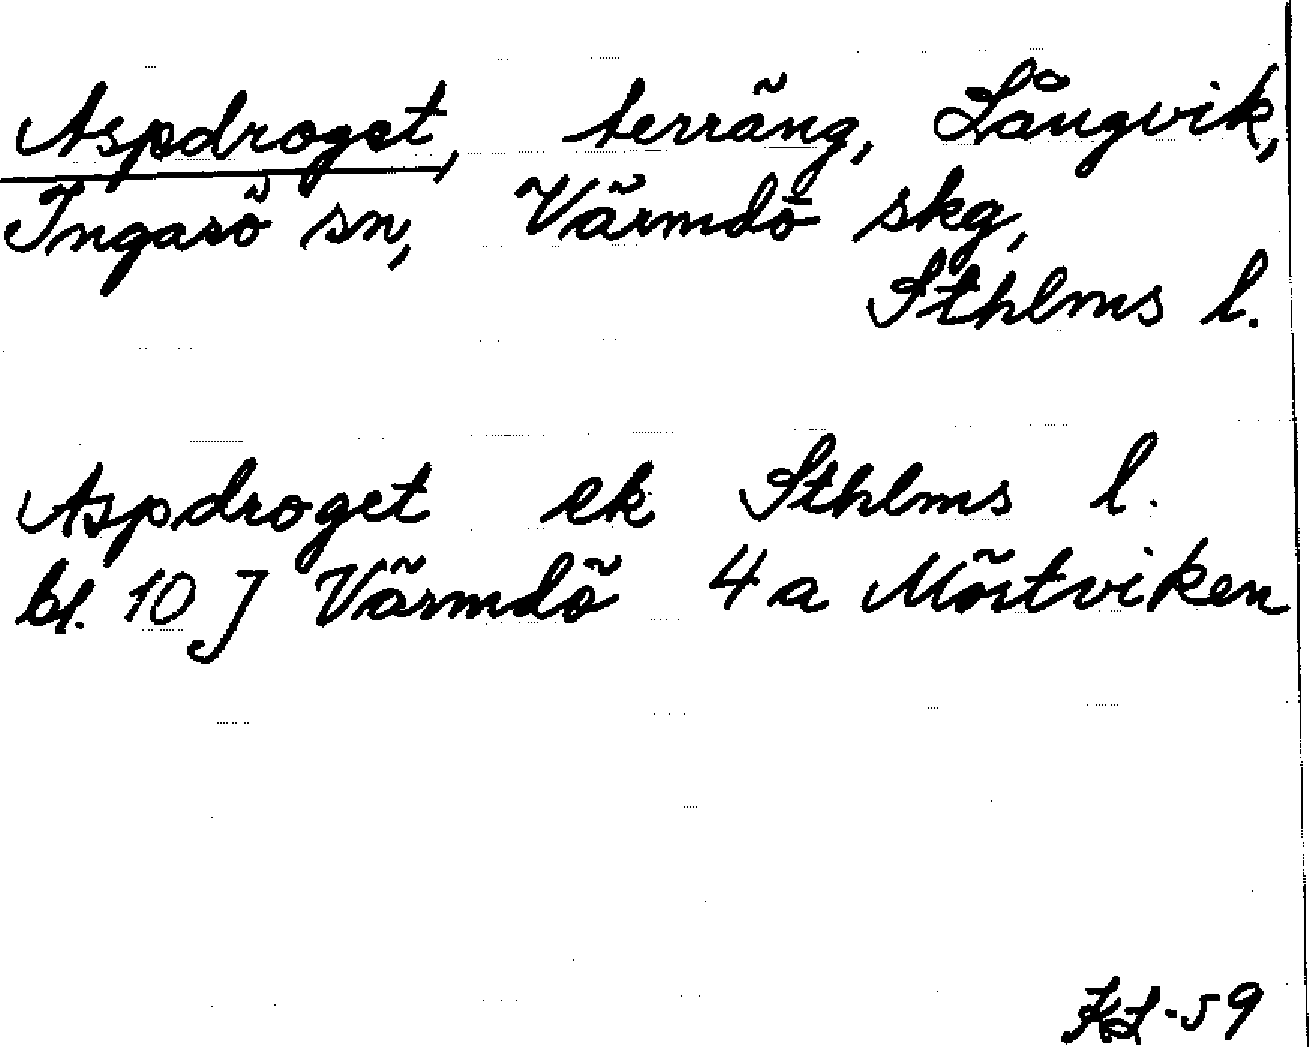 Aspdroget, terräng, Långvik,
Ingarö sn, Värmdö skg,
Sthlms l.
Aspdroget ek Sthlms l.
bl. 10 J Värmdö 4 a Mörtviken
KL-59